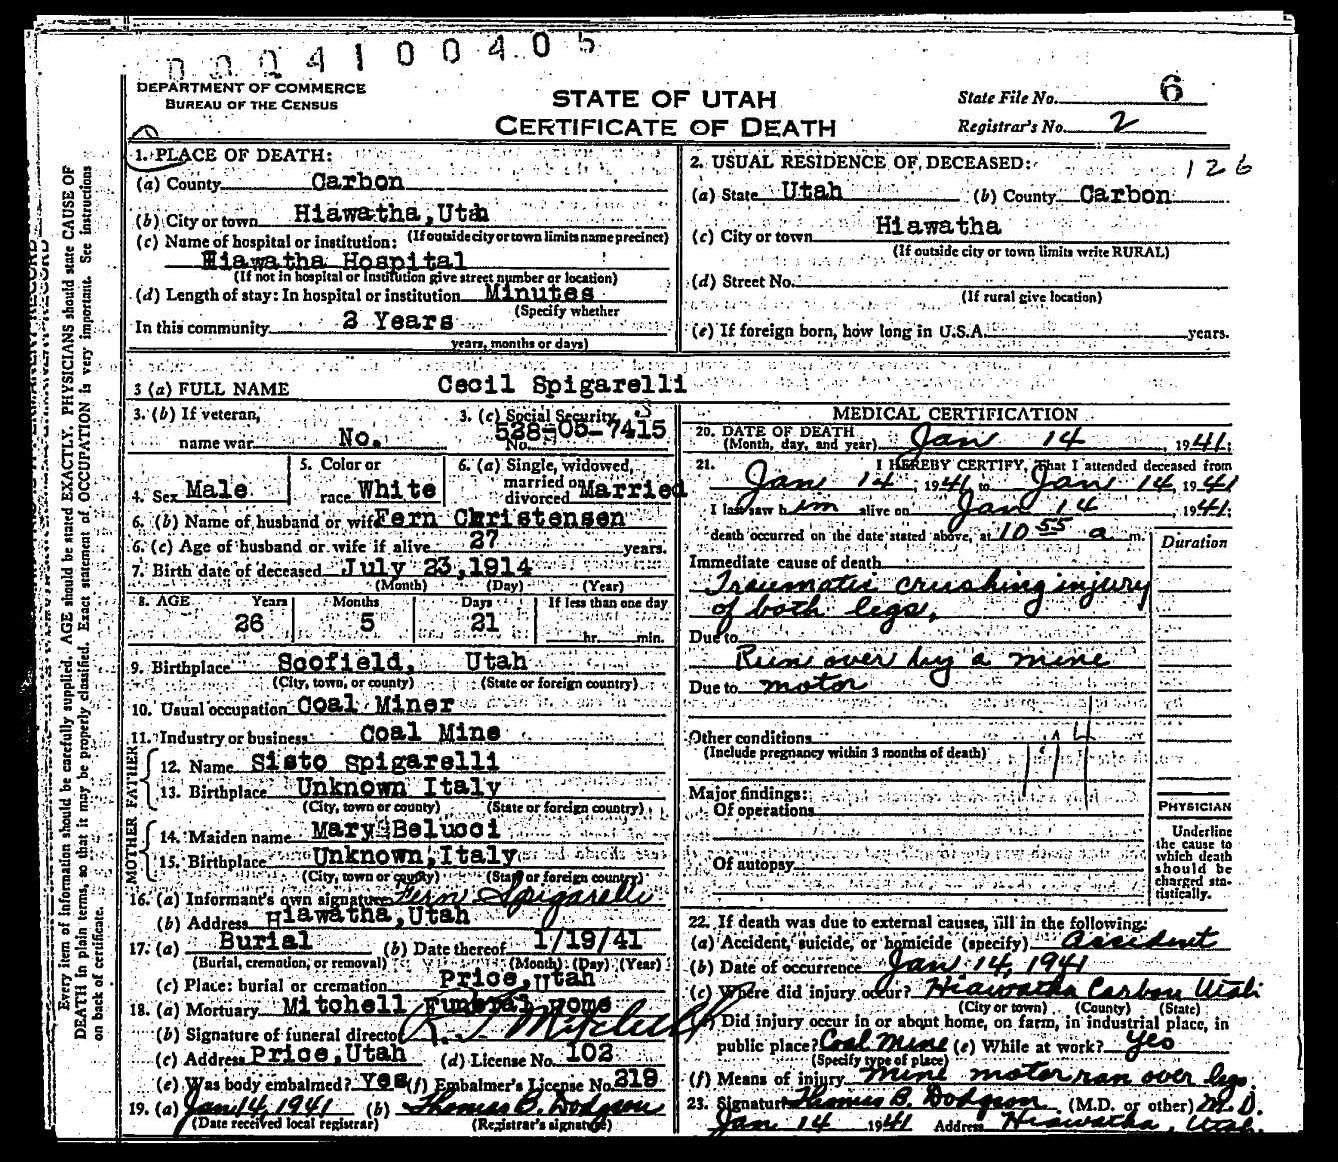 0004100405
DEPARTMENT OF COMMERCE
BUREAU OF THE CENSUS
STATE OF UTAH
CERTIFICATE OF DEATH
State File No. 6
Registrar's No. 2
126
1. PLACE OF DEATH:
(a) County Carbon
(b) City or town Hiawatha, Utah
(If outside city or town limits name precinct)
(c) Name of hospital or institution:
Hiawatha Hospital
(If not in hospital or institution give street number or location)
(d) Length of stay: In hospital or institution Minutes
(Specify whether
In this community 2 Years
years, months or days)
2. USUAL RESIDENCE OF DECEASED:
(a) State Utah (b) County Carbon
(c) City or town Hiawatha
(If outside city or town limits write RURAL)
(d) Street No.
(If rural give location)
(e) If foreign born, how long in U.S.A. years.
3 (a) FULL NAME Cecil Spigarelli
3. (b) If veteran, name war No.
3. (c) Social Security No. 528-05-7415
4. Sex Male
5. Color or race White
6. (a) Single, widowed, married or divorced Married
6. (b) Name of husband or wife Fern Christensen
6. (c) Age of husband or wife if alive 27 years.
7. Birth date of deceased July 23, 1914
(Month) (Day) (Year)
8. AGE Years Months Days If less than one day
26 5 21 hr. min.
9. Birthplace Scofield, Utah
(City, town, or county) (State or foreign country)
10. Usual occupation Coal Miner
11. Industry or business Coal Mine
FATHER
12. Name Sisto Spigarelli
13. Birthplace Unknown Italy
(City, town or county) (State or foreign country)
MOTHER
14. Maiden name Mary Belucci
15. Birthplace Unknown, Italy
(City, town or county) (State or foreign country)
16. (a) Informant's own signature Fern Spigarelli
(b) Address Hiawatha, Utah
17. (a) Burial (b) Date thereof 1/19/41
(Burial, cremation, or removal) (Month) (Day) (Year)
(c) Place: burial or cremation Price, Utah
18. (a) Mortuary Mitchell Funeral Home
(b) Signature of funeral director R. J. Mitchell
(c) Address Price, Utah (d) License No. 102
(e) Was body embalmed? Yes (f) Embalmer's License No. 219
19. (a) Jan 14, 1941 (b) Thomas B. Dodgson
(Date received local registrar) (Registrar's signature)
MEDICAL CERTIFICATION
20. DATE OF DEATH
(Month, day, and year) Jan 14, 1941;
21. I HEREBY CERTIFY, That I attended deceased from
Jan 14, 1941 to Jan 14, 1941
I last saw him alive on Jan 14, 1941;
death occurred on the date stated above, at 10 55 a m.
Duration
Immediate cause of death
Traumatic crushing injury
of both legs,
Due to
Run over by a mine
Due to motor
Other conditions
(Include pregnancy within 3 months of death)
Major findings:
Of operations
Of autopsy
PHYSICIAN
Underline
the cause to
which death
should be
charged sta-
tistically.
22. If death was due to external causes, fill in the following:
(a) Accident, suicide, or homicide (specify) Accident
(b) Date of occurrence Jan 14, 1941
(c) Where did injury occur? Hiawatha Carbon Utah
(City or town) (County) (State)
Did injury occur in or about home, on farm, in industrial place, in
public place? Coal Mine (e) While at work? Yes
(Specify type of place)
(f) Means of injury Mine motor ran over legs.
23. Signature Thomas B. Dodgson (M.D. or other) M.D.
Jan 14 1941 Address Hiawatha, Utah.
Every item of information should be carefully supplied. AGE should be stated EXACTLY. PHYSICIANS should state CAUSE OF
DEATH in plain terms, so that it may be properly classified. Exact statement of OCCUPATION is very important. See instructions
on back of certificate.